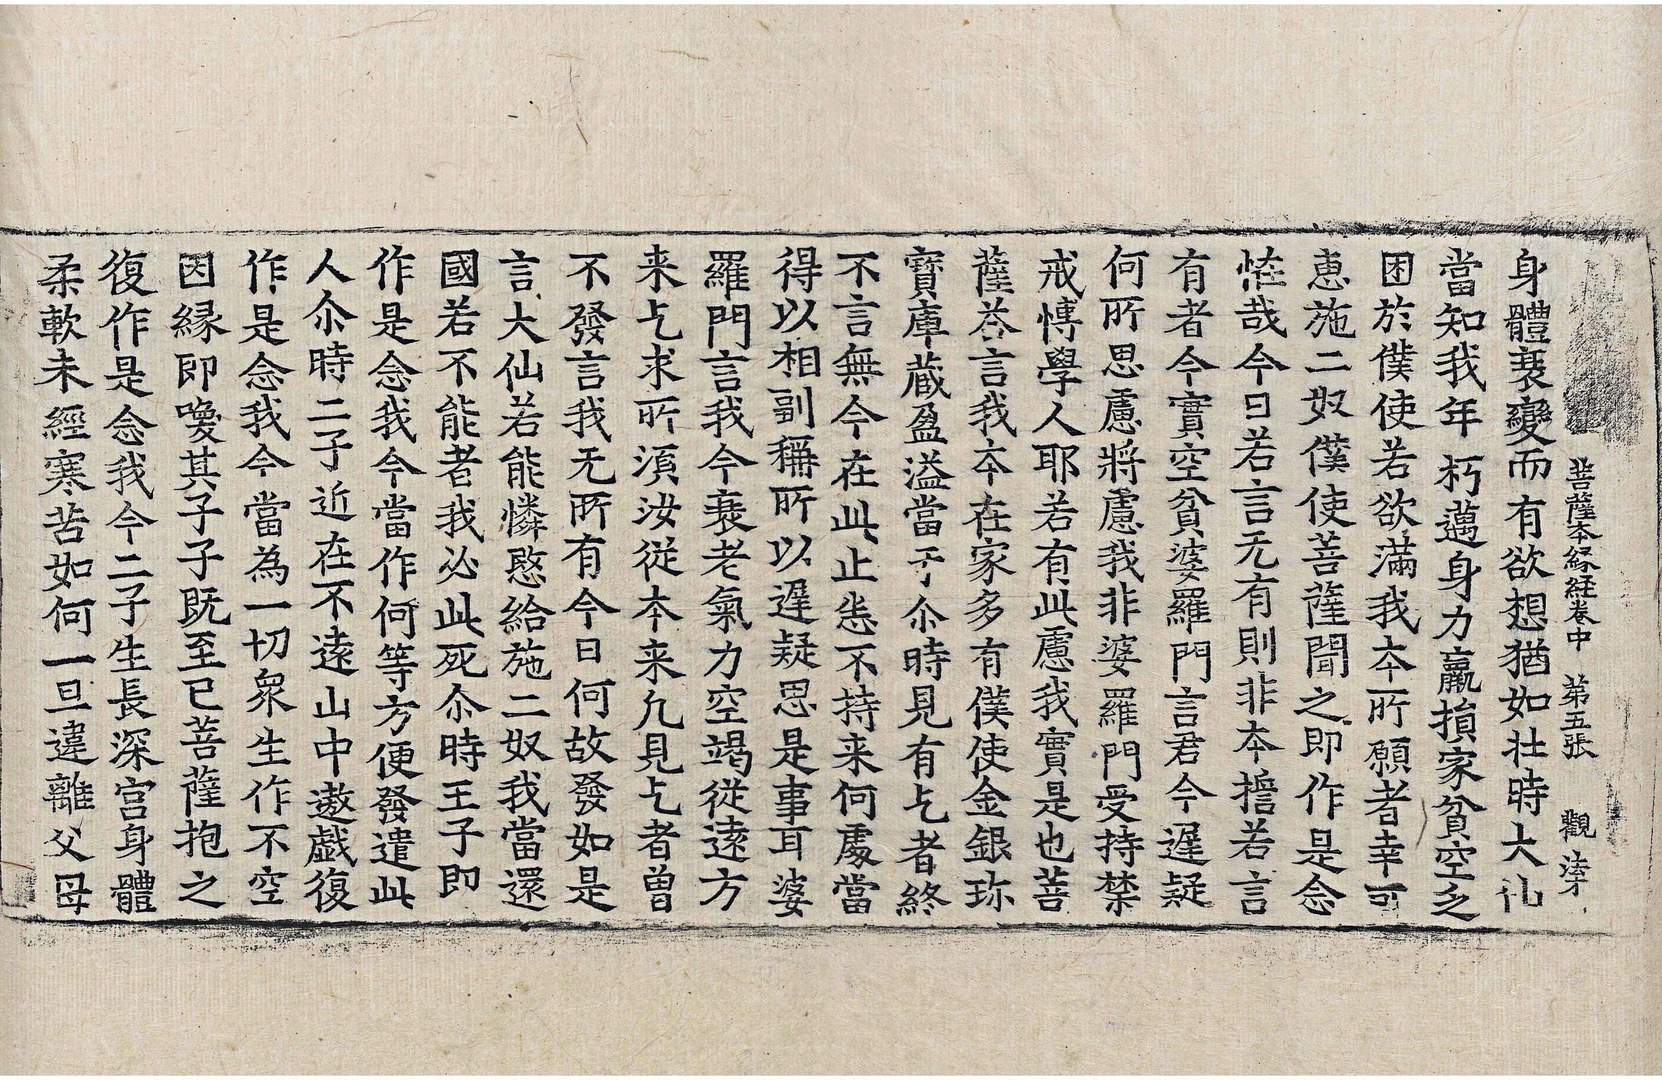 菩薩本緣經卷中 第五張 觀法才
身體衰變而有欲想猶如壯時大仙
當知我年朽邁身力羸損家貧空乏
困於僕使若欲滿我夲所願者幸可
惠施二奴僕使菩薩聞之即作是念
恠哉今日若言无有則非夲擔若言
有者今實空貧婆羅門言君今遲疑
何所思慮將慮我非婆羅門受持禁
戒愽學人耶若有此慮我實是也菩
薩荅言我夲在家多有僕使金銀珎
寶庫蔵盈溢當于尒時見有乞者終
不言無今在此止恚不持来何處當
得以相副稱所以遲疑思是事耳婆
羅門言我今衰老氣力空竭從遠方
来乞求所湏汝從夲来凢見乞者曽
不發言我无所有今日何故發如是
言大仙若能憐愍給施二奴我當還
國若不能者我必此死尒時王子即
作是念我今當作何等方便發遣此
人尒時二子近在不遠山中遨戱復
作是念我今當為一切衆生作不空
因緣即喚其子子既至已菩薩抱之
復作是念我今二子生長深宮身體
柔軟未經寒苦如何一旦違離父母